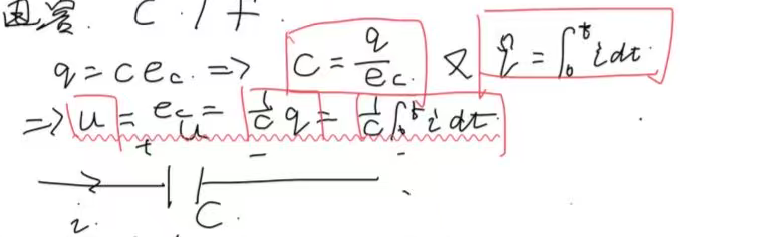 电容. C / f.
q = c e_c. => C = q/e_c. 又 q = ∫₀ᵗ i dt.
=> u = e_c = 1/c q = 1/c ∫₀ᵗ i dt.
+ u -
i. C.